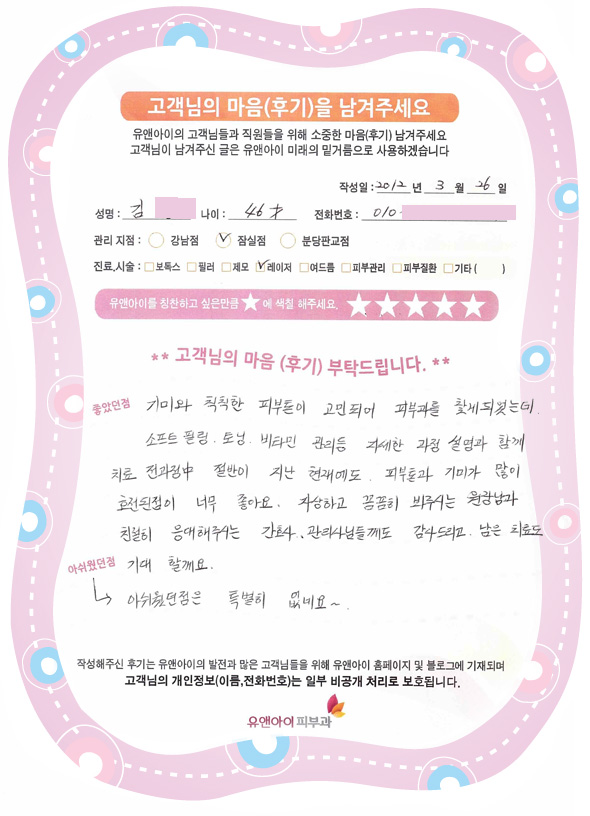 고객님의 마음(후기)을 남겨주세요
유앤아이의 고객님들과 직원들을 위해 소중한 마음(후기) 남겨주세요
고객님이 남겨주신 글은 유앤아이 미래의 밑거름으로 사용하겠습니다
작성일 : 2012 년 3 월 26 일
성명 : 김 나이 : 46 才 전화번호 : 010-
관리 지점 : 강남점 잠실점 분당판교점
진료,시술 : 보톡스 필러 제모 레이저 여드름 피부관리 피부질환 기타 ( )
유앤아이를 칭찬하고 싶은만큼 ★ 에 색칠 해주세요. ★★★★★
** 고객님의 마음 (후기) 부탁드립니다. **
좋았던점 기미와 칙칙한 피부톤이 고민되어 피부과를 찾게되었는데.
소프트 필링. 토닝. 비타민 관리등 자세한 과정 설명과 함께
치료 전과정中 절반이 지난 현재에도. 피부톤과 기미가 많이
호전된점이 너무 좋아요. 자상하고 꼼꼼히 봐주시는 원장님과
친절히 응대해주시는 간호사, 관리사님들께도 감사드리고. 남은 치료도
아쉬웠던점 기대 할께요.
아쉬웠던점은 특별히 없네요~.
작성해주신 후기는 유앤아이의 발전과 많은 고객님들을 위해 유앤아이 홈페이지 및 블로그에 기재되며
고객님의 개인정보(이름,전화번호)는 일부 비공개 처리로 보호됩니다.
유앤아이피부과